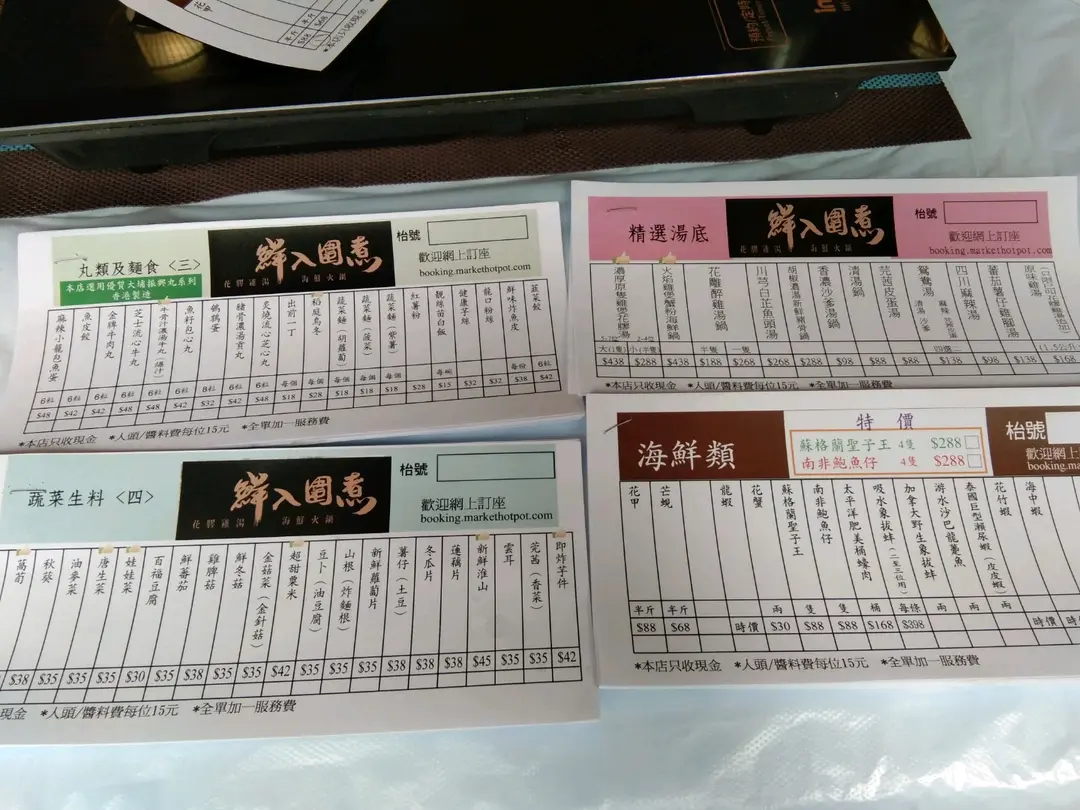 花甲
半斤
$88
$68
*本店只收現金
預約/定時
丸類及麵食 〈三〉
本店選用優質大埔振興丸系列
香港製造
鱻入圍煮
花膠雞湯
海鮮火鍋
枱號
歡迎網上訂座
booking.markethotpot.com
麻辣小龍包魚蛋
魚皮餃
金牌牛肉丸
芝士流心牛丸
牛骨汁濃湯牛丸(爆汁)
魚籽包心丸
鵪鶉蛋
豬骨濃湯貢丸
炎燒流心芝心丸
出前一丁
稻庭烏冬
蔬菜麵(胡蘿蔔)
蔬菜麵(菠菜)
蔬菜麵(紫薯)
紅薯粉
靚絲苗白飯
健康芋絲
龍口粉絲
鮮味炸魚皮
韮菜餃
6粒 6粒 6粒 6粒 6粒 6粒 6粒 6粒 6粒 每個 每個 每個 每個 每個 每碗 每份 6粒
$48 $42 $42 $48 $48 $42 $32 $42 $48 $18 $28 $18 $18 $18 $28 $15 $32 $32 $38 $42
*本店只收現金 *人頭/醬料費每位15元 *全單加一服務費
精選湯底
鱻入圍煮
花膠雞湯
海鮮火鍋
枱號
歡迎網上訂座
booking.markethotpot.com
濃厚原隻雞煲花膠湯
火焰雞煲蟹粉海鮮鍋
花雕醉雞湯鍋
川芎白芷魚頭湯
胡椒濃湯新鮮豬骨鍋
香濃沙爹湯鍋
清湯鍋
芫茜皮蛋湯
鴛鴦湯
四川麻辣湯
蕃茄薯仔雞腳湯
原味雞湯
大(1隻) 小(半隻) 半隻 一隻 四選二
$438 $288 $438 $188 $268 $268 $288 $98 $88 $88 $138 $98 $138 $168
*本店只收現金 *人頭/醬料費每位15元 *全單加一服務費
蔬菜生料 〈四〉
鱻入圍煮
花膠雞湯
海鮮火鍋
枱號
歡迎網上訂座
booking.markethotpot.com
萵筍
秋葵
油麥菜
唐生菜
娃娃菜
百福豆腐
鮮蕃茄
雞脾菇
鮮冬菇
金菇菜(金針菇)
超甜粟米
豆卜(油豆腐)
山根(炸麵根)
新鮮蘿蔔片
薯仔(土豆)
冬瓜片
蓮藕片
新鮮淮山
雲耳
芫茜(香菜)
即炸芋件
$38 $35 $35 $35 $30 $35 $38 $35 $35 $42 $35 $35 $35 $35 $38 $38 $38 $45 $35 $35 $42
現金 *人頭/醬料費每位15元 *全單加一服務費
海鮮類
特價
蘇格蘭聖子王 4隻 $288
南非鮑魚仔 4隻 $288
枱號
歡迎網上
booking.m
花甲
芒蜆
龍蝦
花蟹
蘇格蘭聖子王
南非鮑魚仔
太平洋肥美桶蠔肉
吸水象拔蚌
加拿大野生象拔蚌(二至三位用)
游水沙巴龍躉魚
泰國巨型瀨尿蝦(皮皮蝦)
花竹蝦
海中蝦
半斤 半斤 兩 隻 隻 桶 每條 兩 兩 兩
$88 $68 時價 $30 $88 $88 $168 $398 時價 時
*本店只收現金 *人頭/醬料費每位15元 *全單加一服務費